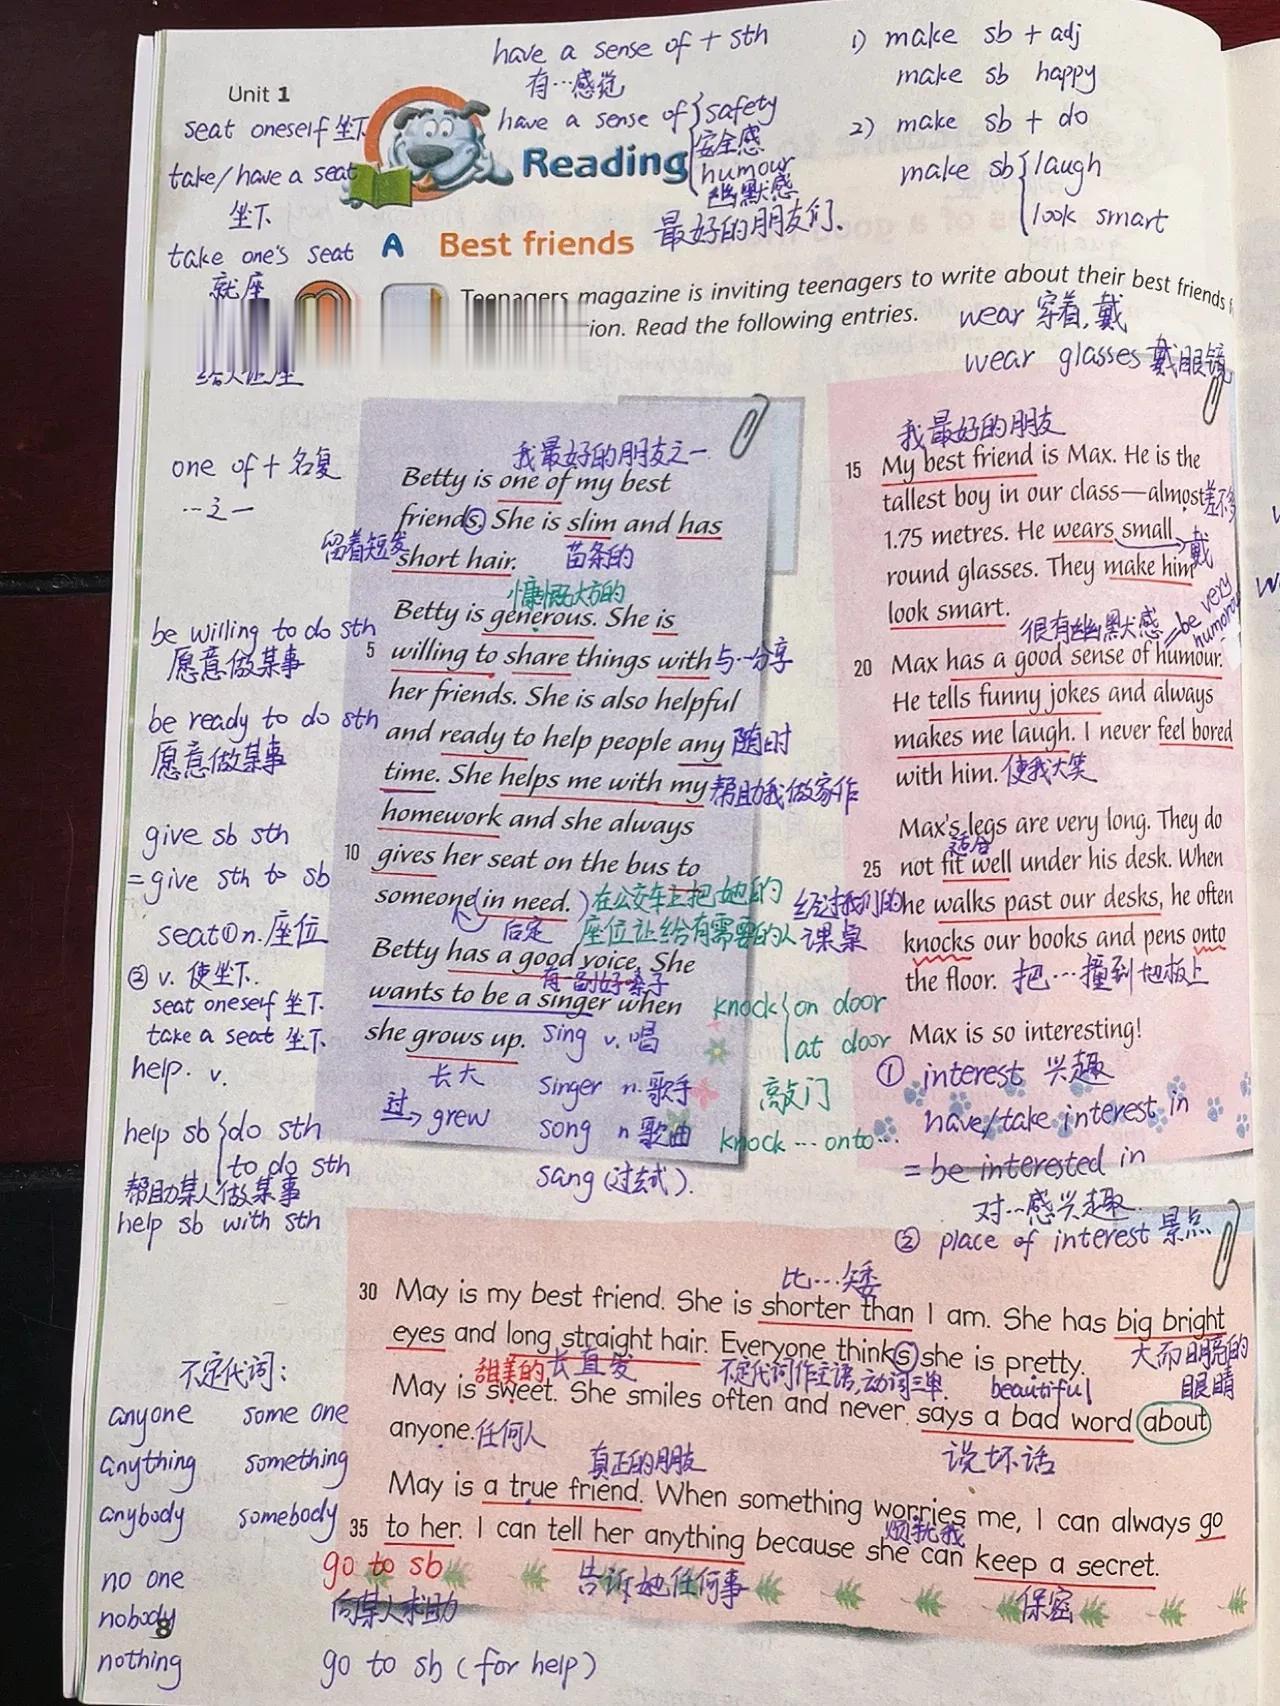 have a sense of + sth
有…感觉
have a sense of { safety
安全感
humour
幽默感
1) make sb + adj
make sb happy
2) make sb + do
make sb { laugh
look smart
Unit 1
seat oneself 坐下
take/have a seat
坐下
take one's seat
就座
Reading
A Best friends
最好的朋友们.
Teenagers magazine is inviting teenagers to write about their best friends
ion. Read the following entries.
wear 穿着,戴
wear glasses 戴眼镜
one of + 名复
…之一
be willing to do sth
愿意做某事
be ready to do sth
愿意做某事
give sb sth
= give sth to sb
seat ① n. 座位
② v. 使坐下.
seat oneself 坐下.
take a seat 坐下.
help. v.
help sb { do sth
to do sth
帮助某人做某事
help sb with sth
我最好的朋友之一
Betty is one of my best
friends. She is slim and has
留着短发
short hair.
苗条的
慷慨大方的
Betty is generous. She is
5 willing to share things with 与…分享
her friends. She is also helpful
and ready to help people any 随时
time. She helps me with my 帮助我做家作
homework and she always
10 gives her seat on the bus to
someone (in need.) 在公交车上把她的
后定 座位让给有需要的人
Betty has a good voice. She
有一副好嗓子
wants to be a singer when
she grows up.
长大
过→ grew
sing v. 唱
singer n. 歌手
song n 歌曲
sang (过去式).
knock { on door
at door
敲门
knock … onto …
我最好的朋友
15 My best friend is Max. He is the
tallest boy in our class—almost 差不多
1.75 metres. He wears small
戴
round glasses. They make him
look smart.
很有幽默感 = be very humorous
20 Max has a good sense of humour.
He tells funny jokes and always
makes me laugh. I never feel bored
with him. 使我大笑
Max's legs are very long. They do
适合
25 not fit well under his desk. When
经过我们的课桌
he walks past our desks, he often
knocks our books and pens onto
the floor. 把…撞到地板上
Max is so interesting!
① interest 兴趣
have/take interest in
= be interested in
对…感兴趣.
② place of interest 景点
比…矮
30 May is my best friend. She is shorter than I am. She has big bright
eyes and long straight hair. Everyone thinks she is pretty.
大而明亮的
眼睛
甜美的 长直发 不定代词作主语,动词三单. beautiful
May is sweet. She smiles often and never says a bad word about
anyone. 任何人
说坏话
真正的朋友
May is a true friend. When something worries me, I can always go
烦扰我
35 to her. I can tell her anything because she can keep a secret.
go to sb
告诉她任何事
保密
向某人求助
go to sb (for help)
不定代词:
anyone some one
anything something
anybody somebody
no one
nobody
nothing
8